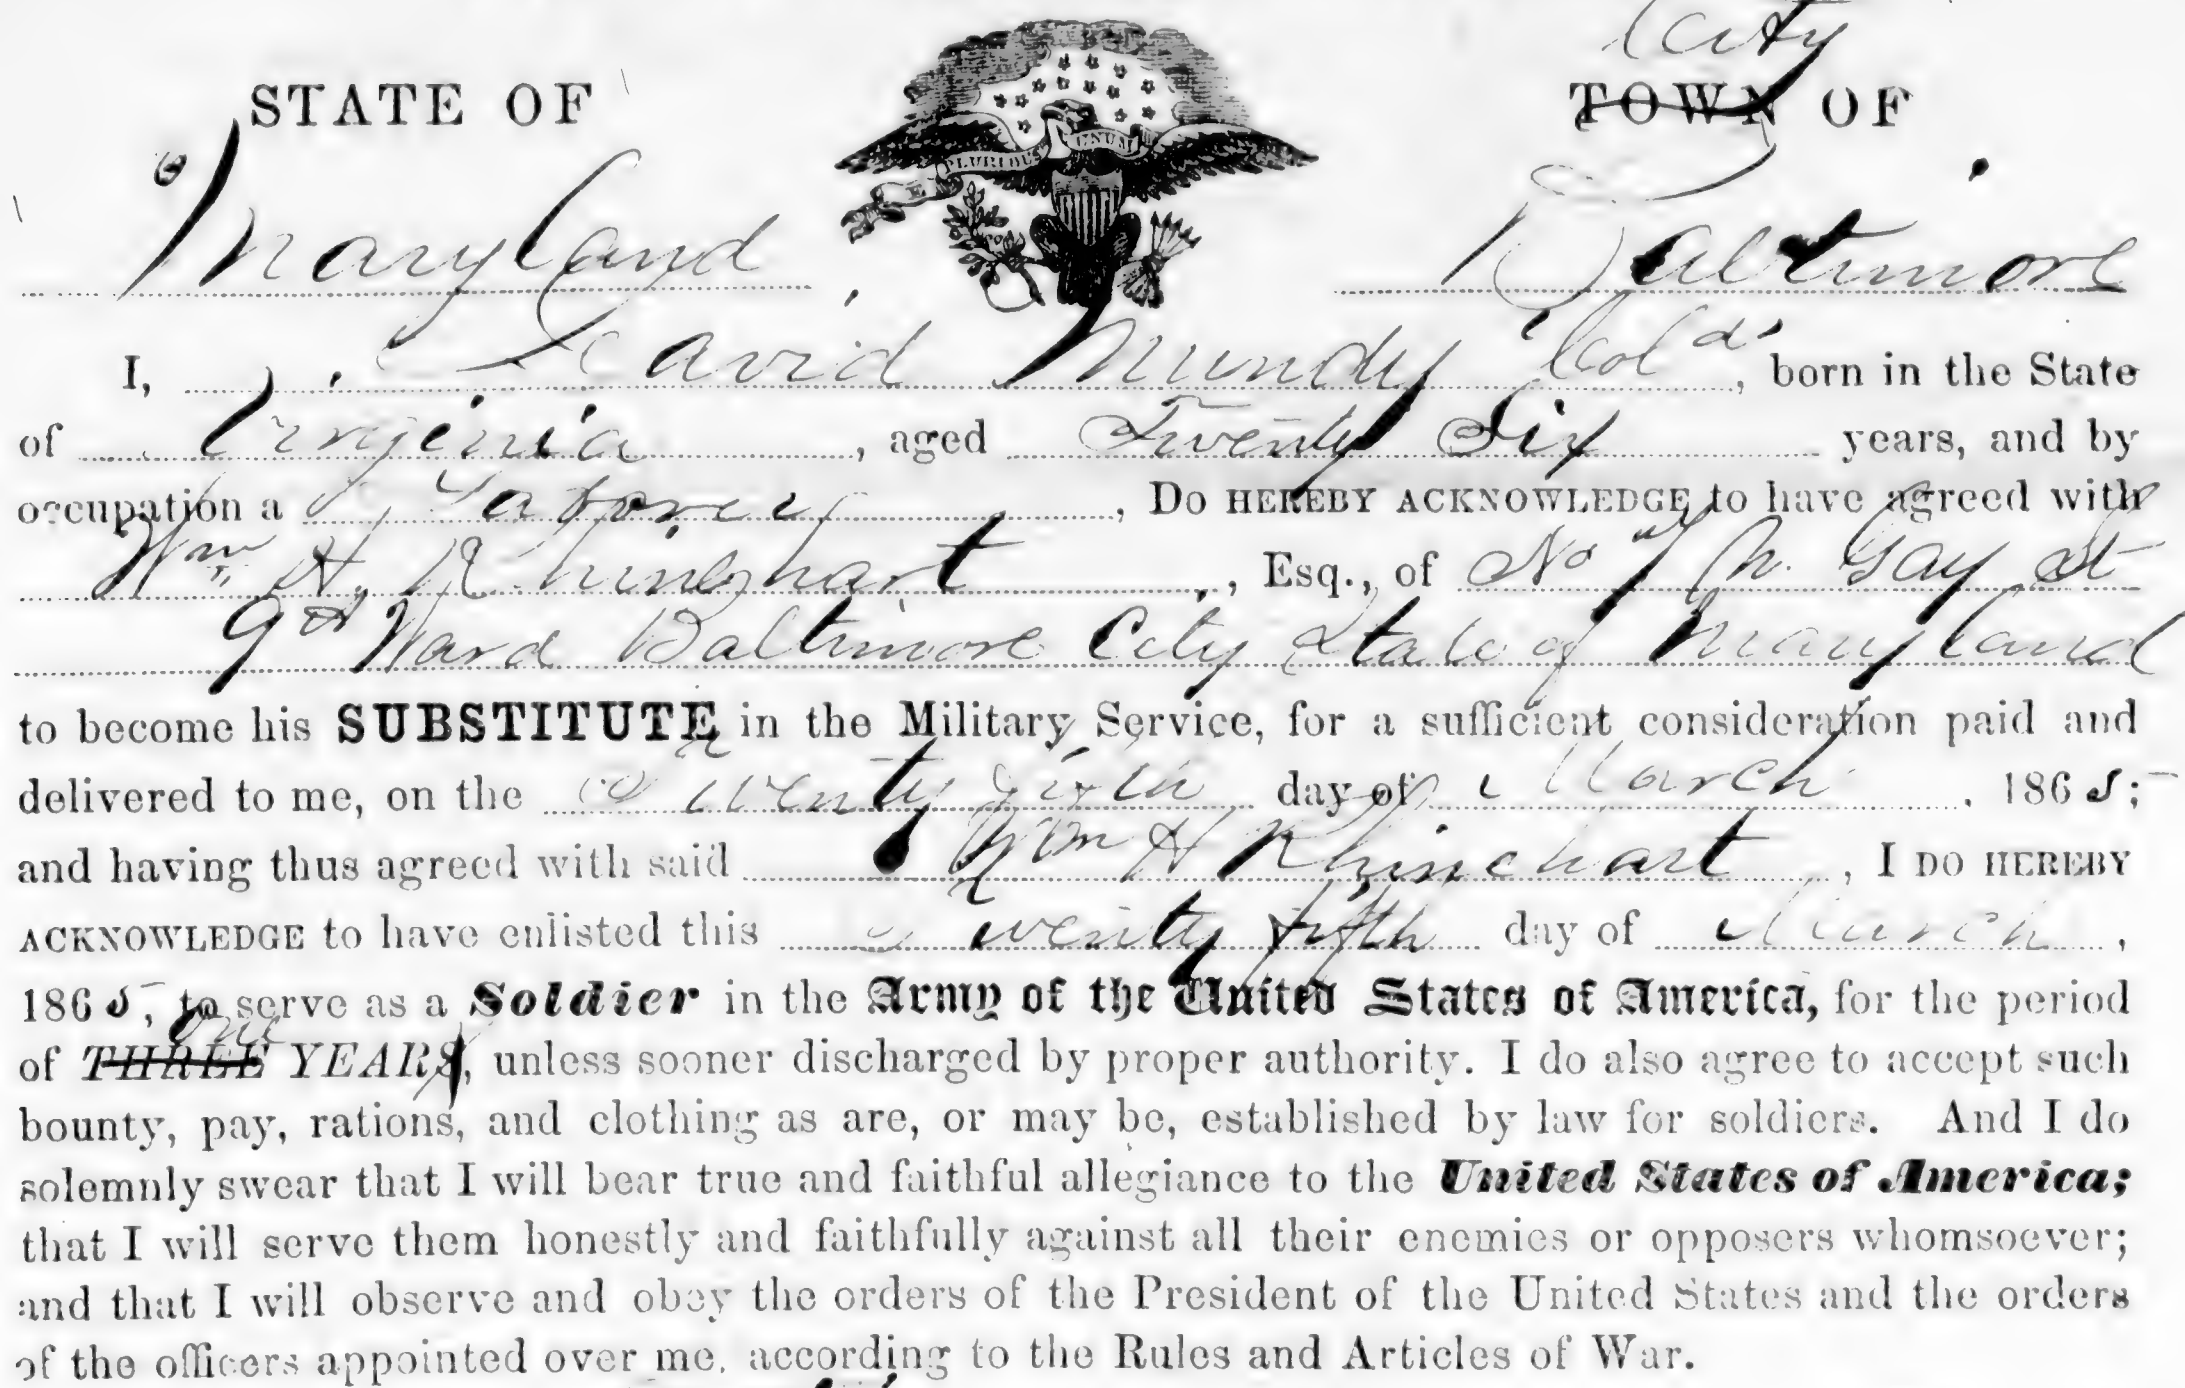 City
STATE OF
TOWN OF
E PLURIBUS UNUM
Maryland
Baltimore
I, David Mundy Cold, born in the State
of Virginia, aged Twenty Six years, and by
occupation a Laborer, DO HEREBY ACKNOWLEDGE to have agreed with
Wm H. Rhinehart, Esq., of No 7 N. Gay St
9th Ward Baltimore City State of Maryland
to become his SUBSTITUTE in the Military Service, for a sufficient consideration paid and
delivered to me, on the Twenty fifth day of March, 1865;
and having thus agreed with said Wm H Rhinehart, I DO HEREBY
ACKNOWLEDGE to have enlisted this Twenty fifth day of March,
1865, to serve as a Soldier in the Army of the United States of America, for the period
one
of THREE YEARS, unless sooner discharged by proper authority. I do also agree to accept such
bounty, pay, rations, and clothing as are, or may be, established by law for soldiers. And I do
solemnly swear that I will bear true and faithful allegiance to the United States of America;
that I will serve them honestly and faithfully against all their enemies or opposers whomsoever;
and that I will observe and obey the orders of the President of the United States and the orders
of the officers appointed over me, according to the Rules and Articles of War.